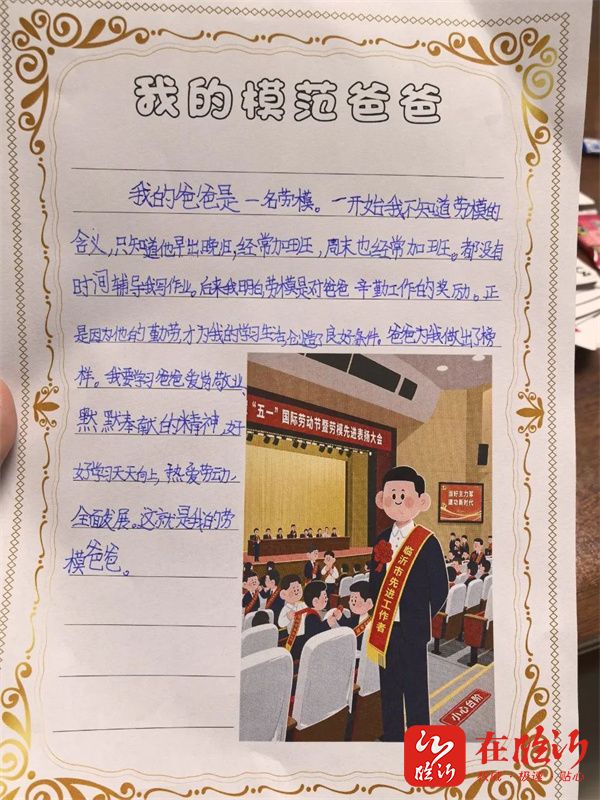 我的模范爸爸
我的爸爸是一名劳模。一开始我不知道劳模的
含义,只知道他早出晚归,经常加班,周末也经常加班。都没有
时间辅导我写作业。后来我明白劳模是对爸爸辛勤工作的奖励。正
是因为他的勤劳才为我的学习生活创造了良好条件。爸爸为我做出了榜
样。我要学习爸爸爱岗敬业、
默默奉献的精神,好
好学习天天向上,热爱劳动,
全面发展。这就是我的劳
模爸爸。
“五一”国际劳动节暨劳模先进表扬大会
当好主力军
建功新时代
临沂市先进工作者
小心台阶
临沂
在临沂
权威·极速·贴心